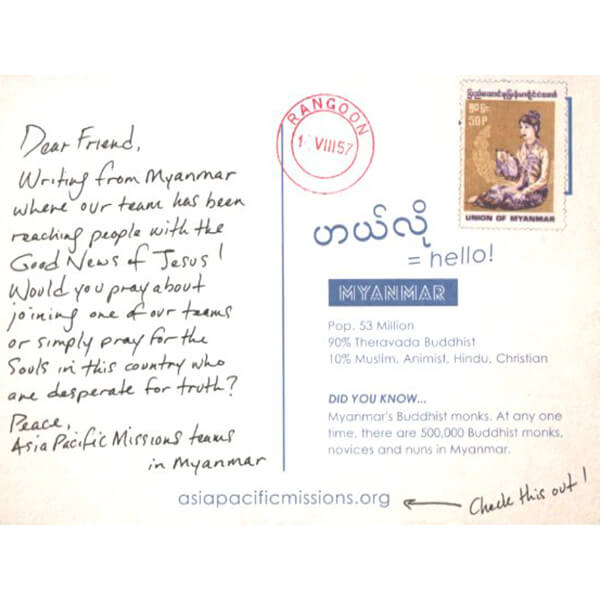 Dear Friend,
Writing from Myanmar
where our team has been
reaching people with the
Good News of Jesus!
Would you pray about
joining one of our teams
or simply pray for the
Souls in this country who
are desperate for truth?
Peace,
Asia Pacific Missions teams
in Myanmar
RANGOON
VIII57
50P
UNION OF MYANMAR
ဟယ်လို
= hello!
MYANMAR
Pop. 53 Million
90% Theravada Buddhist
10% Muslim, Animist, Hindu, Christian
DID YOU KNOW...
Myanmar's Buddhist monks. At any one
time, there are 500,000 Buddhist monks,
novices and nuns in Myanmar.
asiapacificmissions.org
Check this out!